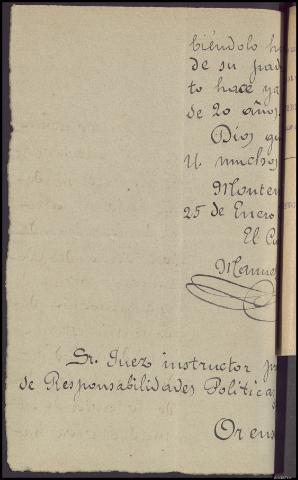 biéndolo
de su pad
to hace ya
de 20 años.
Dios gu
U. muchos
Monter
25 de Enero
El Cu
Manue
Sr. Juez instructor
de Responsabilidades Politicas
Orens